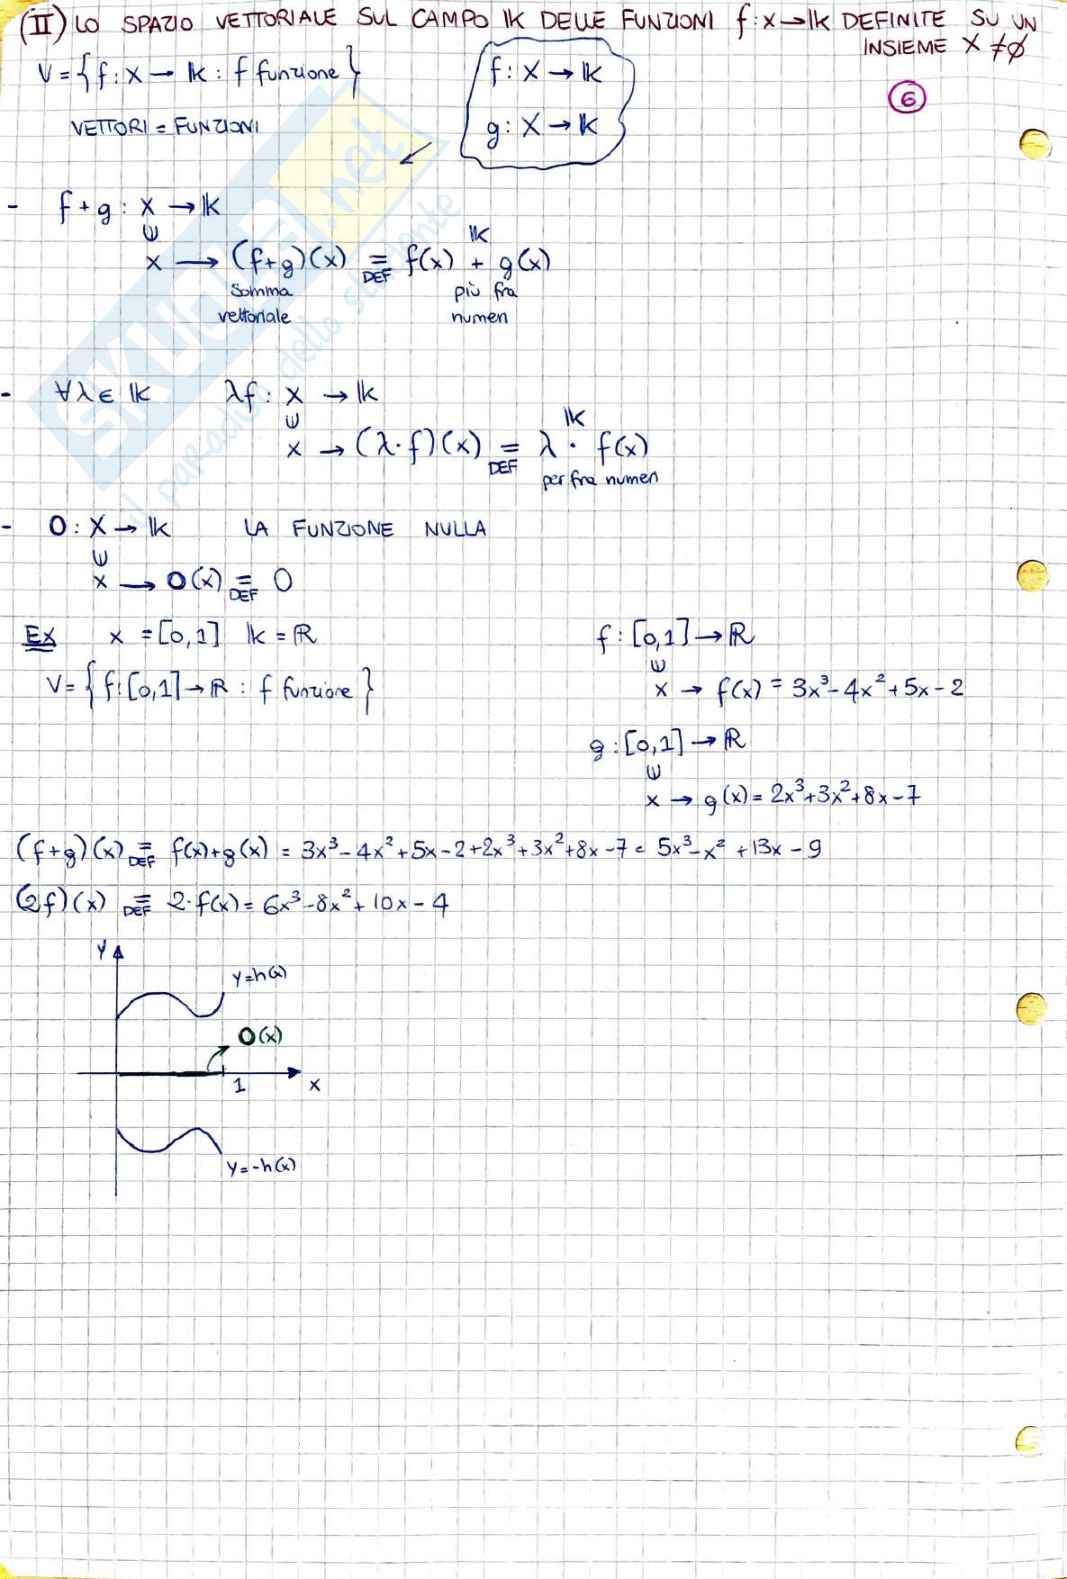 (II) LO SPAZIO VETTORIALE SUL CAMPO 𝕂 DELLE FUNZIONI f: X → 𝕂 DEFINITE SU UN
INSIEME X ≠ ∅
V = { f: X → 𝕂 : f funzione }
f: X → 𝕂
6
VETTORI = FUNZIONI
g: X → 𝕂
- f+g : X → 𝕂
∈ 𝕂
x → (f+g)(x) =DEF f(x) + g(x)
Somma più fra
vettoriale numeri
- ∀λ ∈ 𝕂 λf : X → 𝕂
∈ 𝕂
x → (λ·f)(x) =DEF λ · f(x)
per fra numeri
- O: X → 𝕂 LA FUNZIONE NULLA
∈
x → O(x) =DEF 0
Ex x = [0,1] 𝕂 = ℝ
f: [0,1] → ℝ
∈
V = { f: [0,1] → ℝ : f funzione }
x → f(x) = 3x³ - 4x² + 5x - 2
g: [0,1] → ℝ
∈
x → g(x) = 2x³ + 3x² + 8x - 7
(f+g)(x) =DEF f(x) + g(x) = 3x³ - 4x² + 5x - 2 + 2x³ + 3x² + 8x - 7 = 5x³ - x² + 13x - 9
(2f)(x) =DEF 2·f(x) = 6x³ - 8x² + 10x - 4
y
y=h(x)
O(x)
1 x
y=-h(x)
SKUOLA.net
il paradiso dello studente